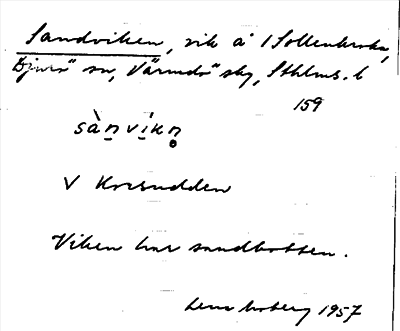 Sandviken, vik å 1 Sollenkroka,
Djurö sn, Värmdö skg, Sthlms. l
159
sàn̲vi̲kn̥
V Korsudden
Viken har sandbotten.
Lena Moberg 1957